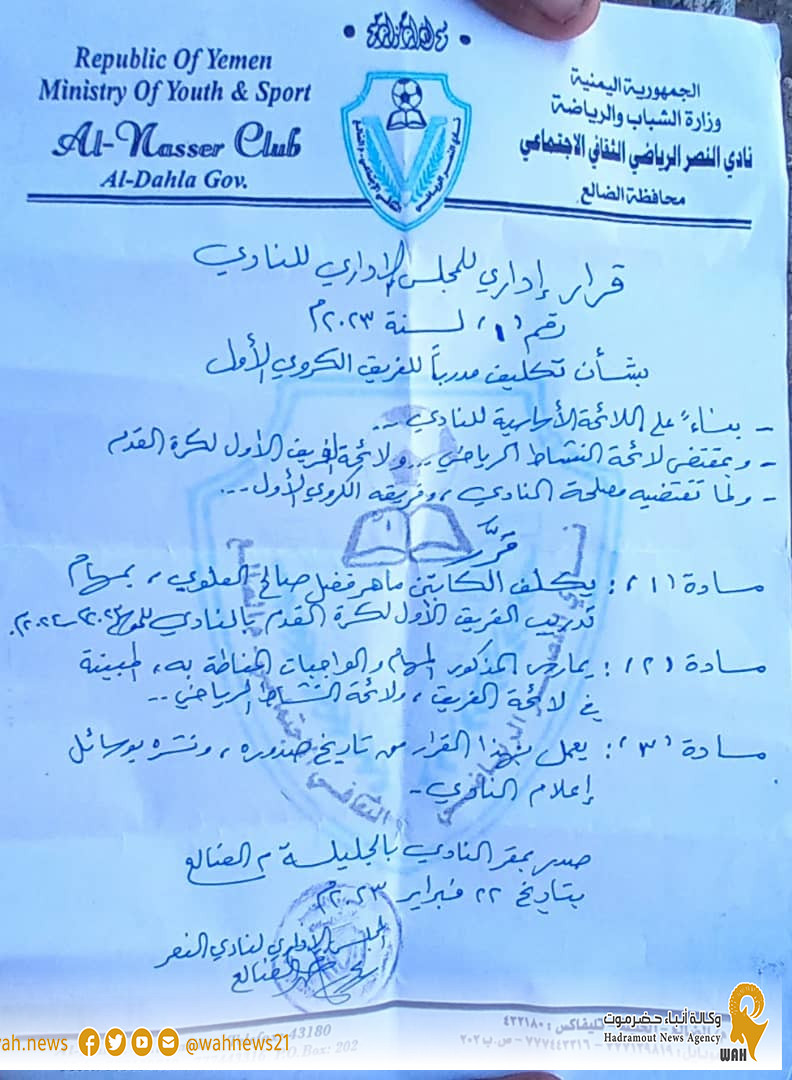 Republic Of Yemen
Ministry Of Youth & Sport
Al-Nasser Club
Al-Dahla Gov.
الجمهورية اليمنية
وزارة الشباب والرياضة
نادي النصر الرياضي الثقافي الاجتماعي
محافظة الضالع
قرار إداري للمجلس الإداري للنادي
رقم (١) لسنة ٢٠٢٣م
بشأن تكليف مدرباً للفريق الكروي الأول
- بناءً على اللائحة الأساسية للنادي ..
- وبمقتضى لائحة النشاط الرياضي .. ولائحة الفريق الأول لكرة القدم
- ولما تقتضيه مصلحة النادي ، وفريقه الكروي الأول ...
قرَّر
مادة (١) : يكلف الكابتن ماهر فضل صالح العلوي ، بمهام
تدريب الفريق الأول لكرة القدم بالنادي
مادة (٢) : يمارس المذكور المهام والواجبات المناطة به ، المبينة
في لائحة الفريق ، ولائحة النشاط الرياضي ..
مادة (٣) : يعمل بهذا القرار من تاريخ صدوره ، ونشره بوسائل
إعلام النادي -
صدر بمقر النادي بالجليلة م الضالع
بتاريخ ٢٢ فبراير ٢٠٢٣م
المجلس الإداري لنادي النصر
الضالع
تليفاكس : ٤٣٢١٨٠
٧٧٧٤٤٢٣١٦ - ص.ب ٢٠٢
43180
P.O Box: 202
وكالة أنباء حضرموت
Hadramout News Agency
WAH
wah.news
@wahnews21